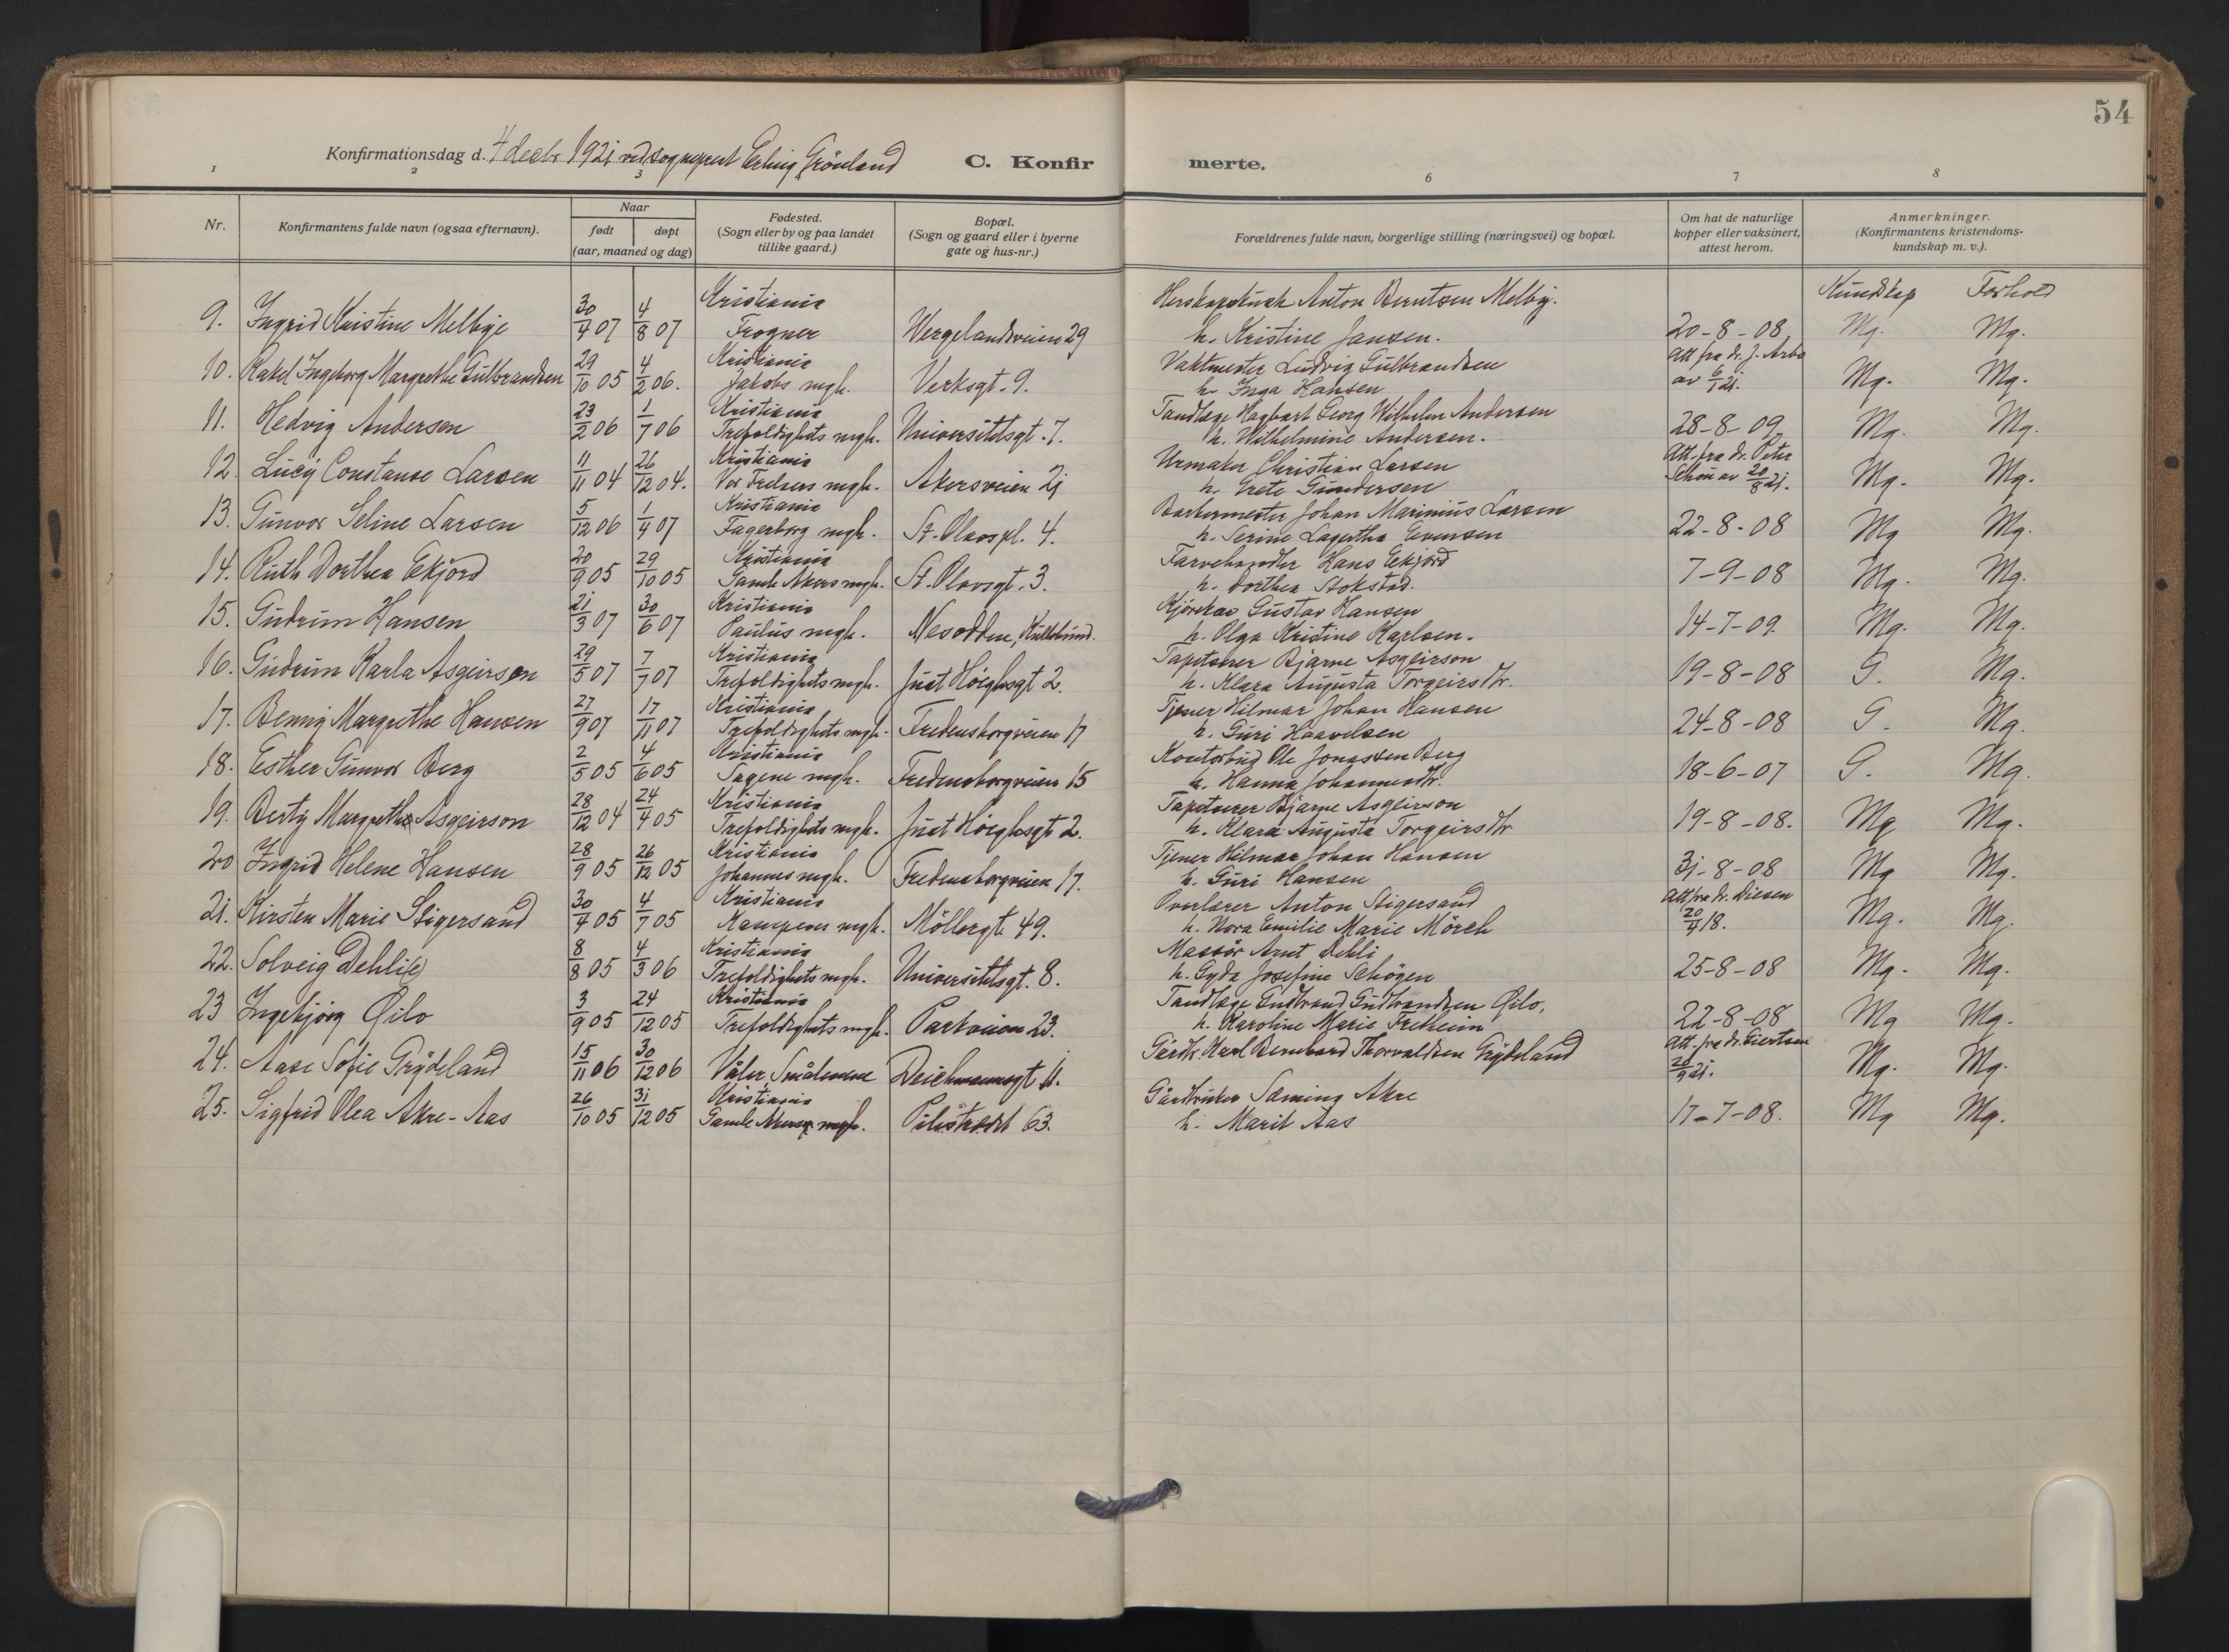 54
Konfirmationsdag d. 4 decbr 1921 ved sogneprest Erling Grönland C. Konfirmerte.
1 2 3 4 6 7 8
Nr. Konfirmantens fulde navn (ogsaa efternavn). Naar født døpt (aar, maaned og dag) Fødested. (Sogn eller by og paa landet tillike gaard.) Bopæl. (Sogn og gaard eller i byerne gate og hus-nr.) Forældrenes fulde navn, borgerlige stilling (næringsvei) og bopæl. Om hat de naturlige kopper eller vaksinert, attest herom. Anmerkninger. (Konfirmantens kristendoms-kundskap m. v.).
Kundskap Forhold
Kristiania Herskapskusk Anton Berntsen Melby.
9. Ingrid Kristine Melbye 30/4 07 4/8 07 Frogner Wergelandsveien 29 h. Kristine Jansen. 20-8-08. Mg. Mg.
Kristiania Vaktmester Ludvig Gulbrandsen Att fra dr. J. Arbo
10. Rakel Ingeborg Margrethe Gulbrandsen 29/10 05 4/2 06. Jakobs mgh. Verksgt. 9. h. Inga Hansen av 6/1 21. Mg. Mg.
Kristiania Tandlæge Hagbart Georg Wilhelm Andersen
11. Hedvig Andersen 23/2 06 1/7 06 Trefoldighets mgh. Universitetsgt. 7. h. Wilhelmine Andersen. 28-8-09. Mg. Mg.
Kristiania Urmaker Christian Larsen Att. fra dr. Peter
12. Lucy Constanse Larsen 11/11 04 26/12 04. Vor Frelsers mgh. Akersveien 21 h. Grete Gundersen Schou av 20/8 21. Mg. Mg.
Kristiania Barbermester Johan Marinius Larsen
13. Gunvor Seline Larsen 5/12 06 1/4 07 Fagerborg mgh. St. Olavspl. 4. h. Serine Lagertha Evensen 22-8-08 Mg Mg.
Kristiania Farvehandler Hans Ekjord
14. Ruth Dorthea Ekjord 20/9 05 29/10 05 Gamle Akers mgh. St. Olavsgt. 3. h. Dorthea Stokstad. 7-9-08 Mg. Mg.
Kristiania Kjørekar Gustav Hansen
15. Gudrun Hansen 21/3 07 30/6 07 Paulus mgh. Nesodden, h. Olga Kristine Karlsen. 14-7-09. Mg. Mg.
Kristiania Tapetserer Bjarne Asgeirson
16. Gudrun Karla Asgeirson 29/5 07 7/7 07 Trefoldighets mgh. Just Höighsgt 2. h. Klara Augusta Torgeirsdtr. 19-8-08 G. Mg.
Kristiania Tjener Hilmar Johan Hansen
17. Benny Margrethe Hansen 27/9 07 17/11 07 Trefoldighets mgh. Fredensborgveien 17 h. Guri Haavelsen 24-8-08 G. Mg.
Kristiania Kontorbud Ole Jonassen Berg
18. Esther Gunvor Berg 2/5 05 4/6 05 Sagene mgh. Fredensborgveien 15 h. Hanna Johannesdtr. 18-6-07 G. Mg.
Kristiania Tapetserer Bjarne Asgeirson
19. Berty Margrethe Asgeirson 28/12 04 24/4 05 Trefoldighets mgh. Just Höighsgt 2. h. Klara Augusta Torgeirsdtr 19-8-08. Mg Mg.
Kristiania Tjener Hilmar Johan Hansen
20 Ingrid Helene Hansen 28/9 05 26/12 05 Johannes mgh. Fredensborgveien 17. h. Guri Hansen 31-8-08 Mg Mg.
Kristiania Overlærer Anton Stigersand Att fra dr. Diesen
21. Kirsten Marie Stigersand 30/4 05 4/7 05 Kampens mgh. Möllergt 49. h. Nora Emilie Marie Mörch 20/4 18. Mg. Mg.
Kristiania Massör Arnt Dehli
22. Solveig Dehli(e) 8/8 05 4/3 06 Trefoldighets mgh. Universitetsgt. 8. h. Gyda Josefine Schögen 25-8-08 Mg. Mg.
Kristiania Tandlæge Gudbrand Gudbrandsen Øilo,
23 Ingebjörg Øilo 3/9 05 24/12 05 Trefoldighets mgh. Parkveien 23. h. Karoline Marie Fretheim 22-8-08 Mg Mg.
Gårdbr. Karl Bernhard Thorvaldsen Grydeland Att. fra dr. Giertsen
24. Aase Sofie Grydeland 15/11 06 30/12 06 Våler, Smålenene Deichmansgt 11. 20/9 21. Mg. Mg.
Kristiania Gårdbruker Sæming Akre
25. Sigfrid Olea Akre-Aas 26/10 05 31/12 05 Gamle Akers mgh. Pilestrædet 63. h. Marit Aas 17-7-08. Mg Mg.